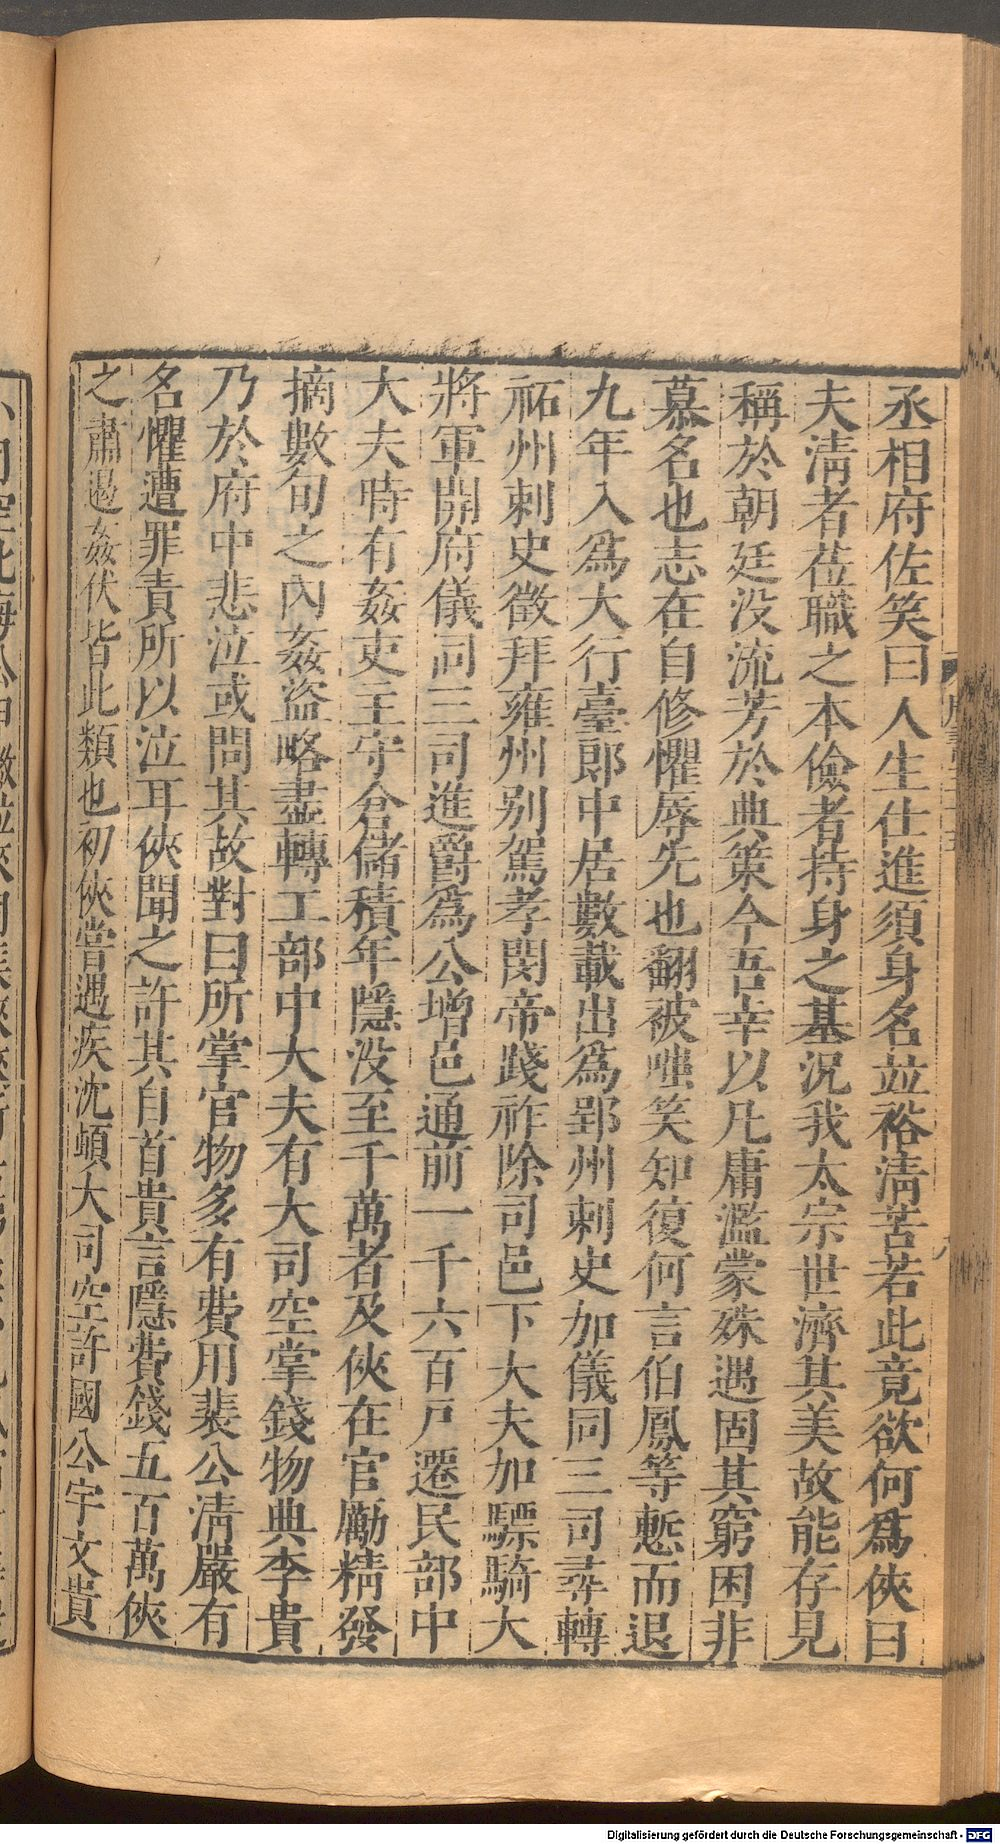 丞相府佐笑曰人生仕進須身名並裕淸苦若此竟欲何爲俠曰
夫淸者莅職之本儉者持身之基況我太宗世濟其美故能存見
稱於朝廷没流芳於典策今吾幸以凡庸濫蒙殊遇固其窮困非
慕名也志在自修懼辱先也翻被嗤笑知復何言伯鳳等慙而退
九年入爲大行臺郎中居數載出爲郢州刺史加儀同三司尋轉
祏州刺史徵拜雍州别駕孝閔帝踐祚除司邑下大夫加驃騎大
將軍開府儀同三司進爵爲公增邑通前一千六百戸遷民部中
大夫時有姦吏主守倉儲積年隱没至千萬者及俠在官勵精發
摘數旬之內姦盜略盡轉工部中大夫有大司空掌錢物典李貴
乃於府中悲泣或問其故對曰所掌官物多有費用裴公淸嚴有
名懼遭罪責所以泣耳俠聞之許其自首貴言隱費錢五百萬俠
之肅遏姦伏皆此類也初俠嘗遇疾沈頓大司空許國公宇文貴
Digitalisierung gefördert durch die Deutsche Forschungsgemeinschaft - DFG